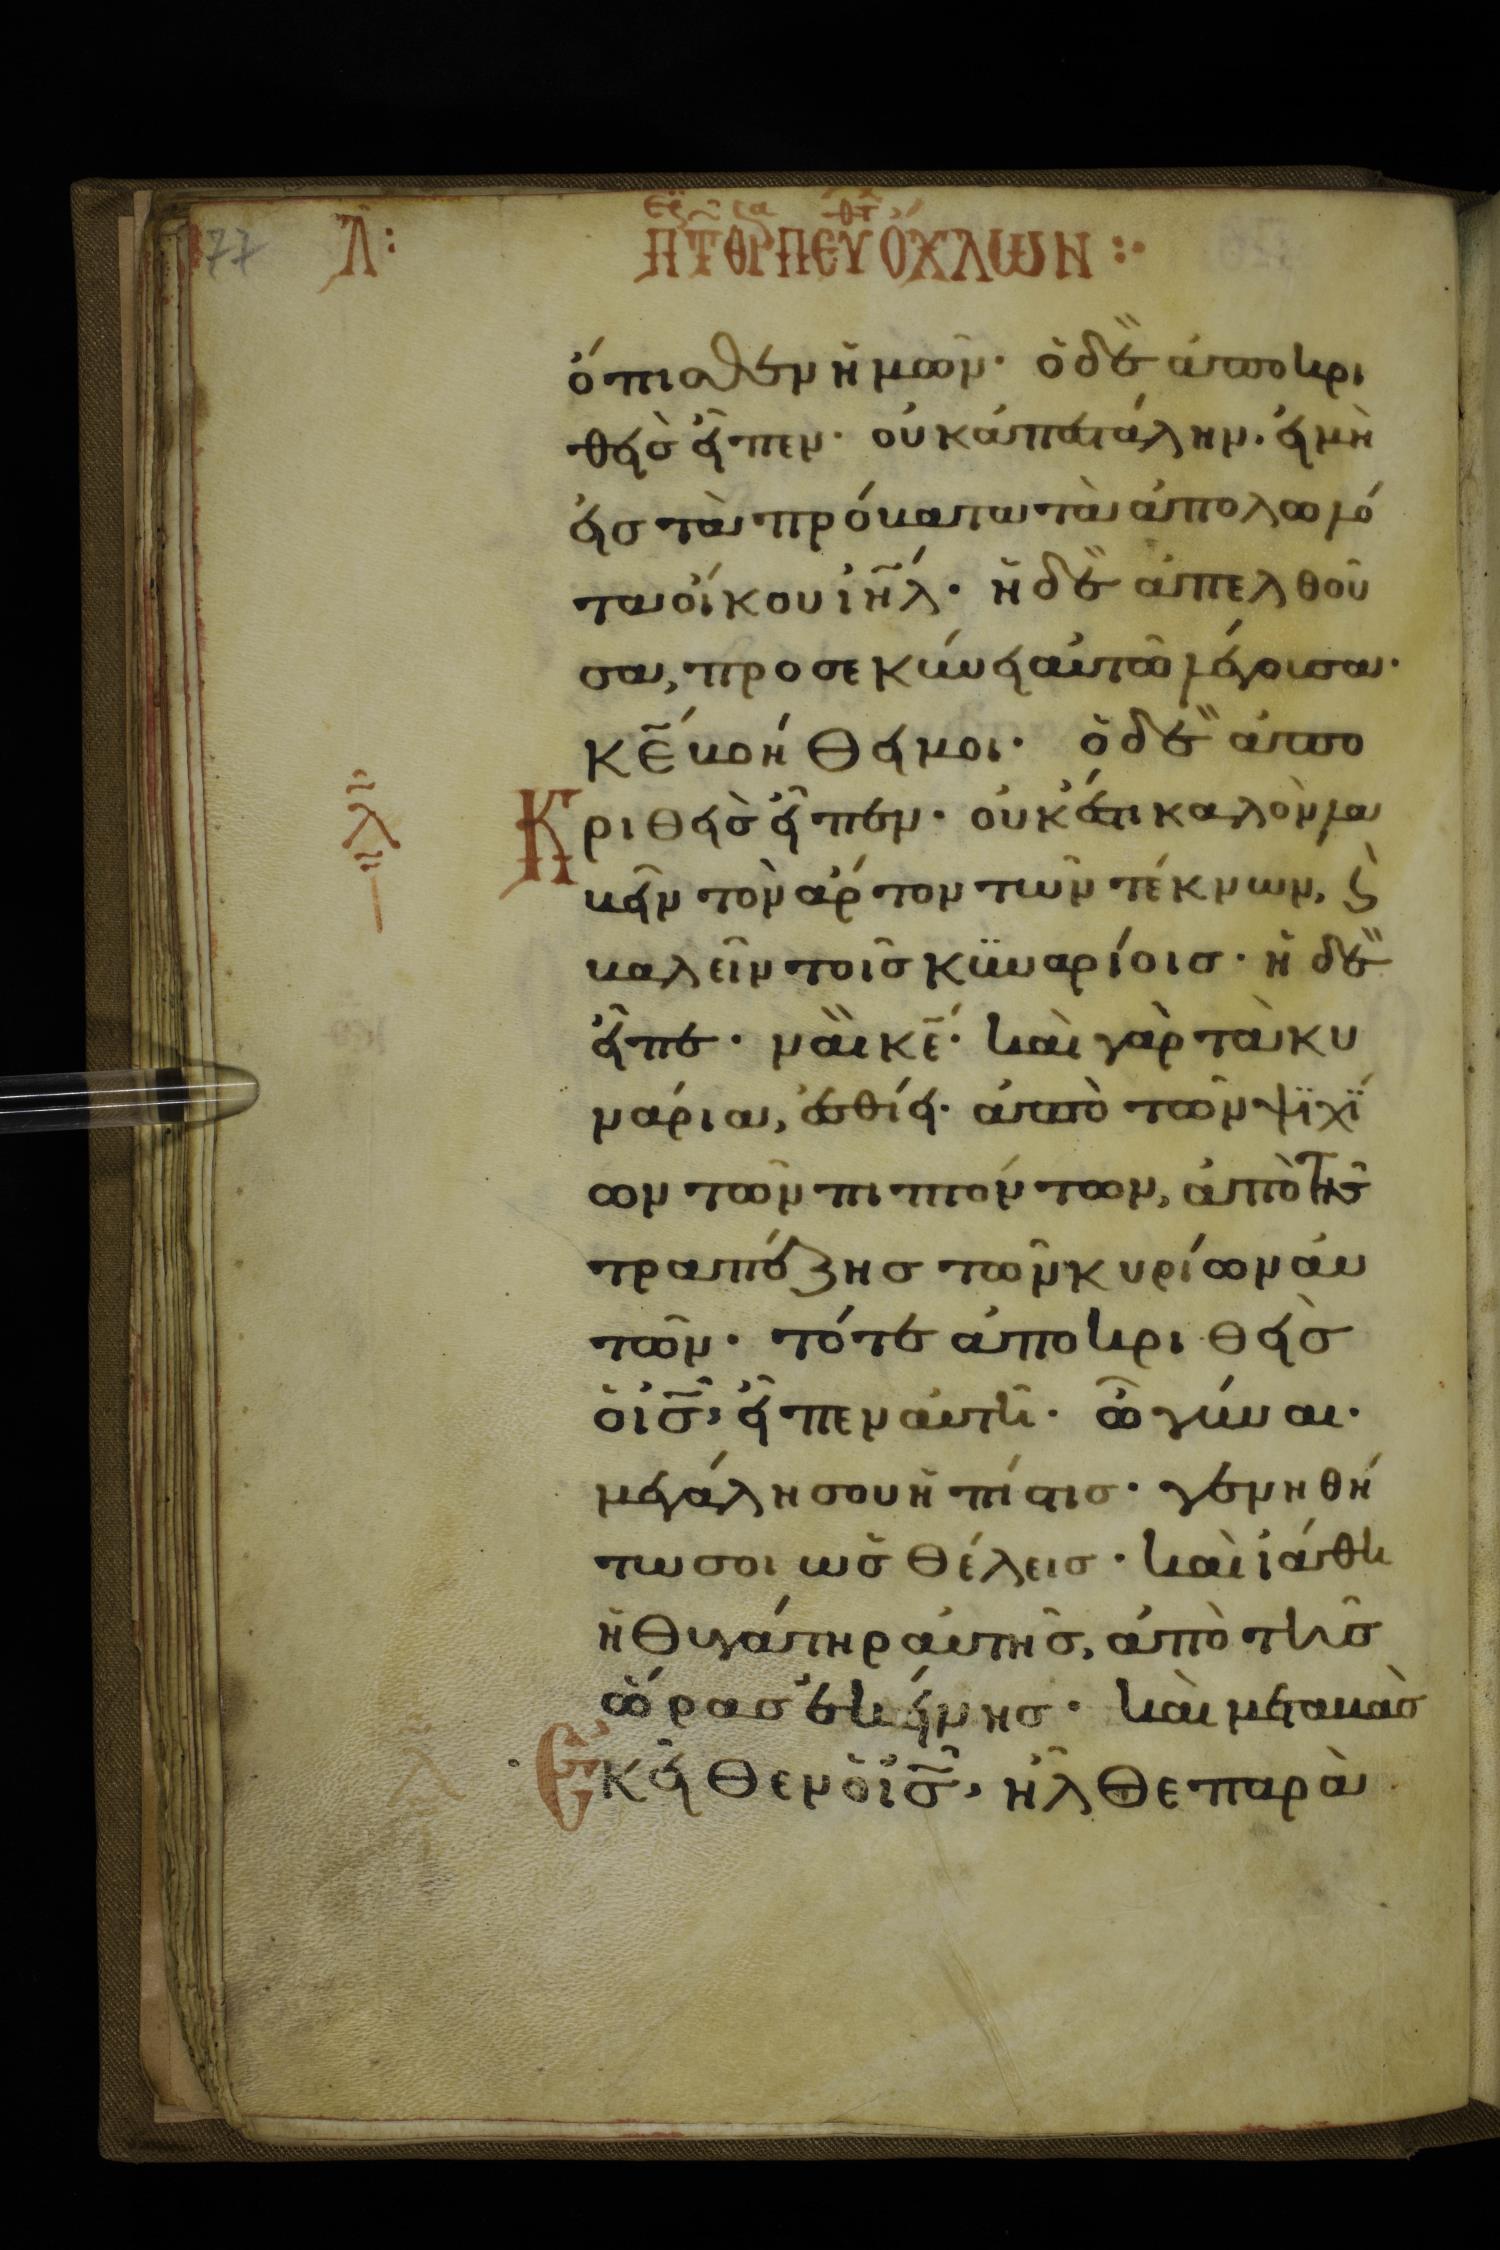 77
Λ:
Π ΤΘΡΠΕΥ ΟΧΛΩΝ
ὄπισθεν ἡμῶν· ὁ δὲ ἀποκρι
θεὶς εἶπεν· οὐκ ἀπεστάλην· εἰ μὴ
εἰς τὰ πρόβατα τὰ ἀπολωλό
τα οἴκου ἰη̄λ· ἡ δὲ ἀπελθοῦ
σα, προσεκύνει αὐτῶ λέγουσα·
κ̄ε βοήθει μοι· ὁ δὲ ἀπο
Κριθεὶς εἶπεν· οὐκ ἔστι καλὸν λα
βεῖν τὸν ἄρτον τῶν τέκνων, ϗ
βαλεῖν τοῖς κϋναρίοις· ἡ δὲ
εἶπε· ναὶ κ̄ε· καὶ γὰρ τὰ κυ
νάρια, ἐσθίει ἀπὸ τῶν ψϊχΐ
ων τῶν πιπτόντων, ἀπὸ τῆς
τραπέζης τῶν κυρίων αὐ
τῶν· τότε ἀποκριθεὶς
ὁ ῑς, εἶπεν αὐτῆ· ὦ γύναι·
μεγάλη σου ἡ πίστις· γενηθή
τω σοι ὡς θέλεις· καὶ ἰάθη
ἡ θυγάτηρ αὐτῆς, ἀπὸ τῆς
ὥρας ἐκείνης· καὶ μεταβὰς
Ἐκεῖθεν ὁ ῑς, ἦλθε παρὰ